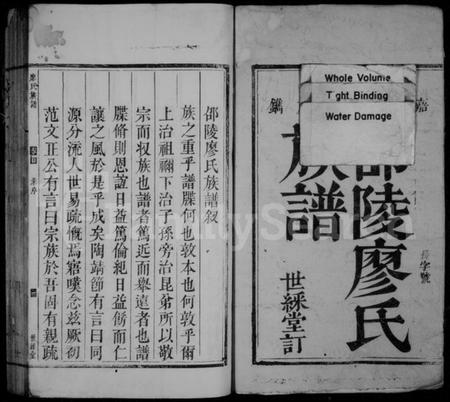 Whole Volume
Tight Binding
Water Damage
嘉
鐫
邵陵廖氏
族譜
世綵堂訂
字號
邵陵廖氏族譜叙
族之重乎譜牒何也敦本也何敦乎爾
上治祖禰下治子孫旁治昆弟所以敬
宗而収族也譜者篤近而舉遠者也譜
牒脩則恩誼日益篤倫紀日益飭而仁
讓之風於是乎成矣陶靖節有言曰同
源分流人世易疏慨焉寤嘆念兹厥初
范文正公有言曰宗族於吾固有親疏
廖氏族譜
世綵堂
FamilySearch